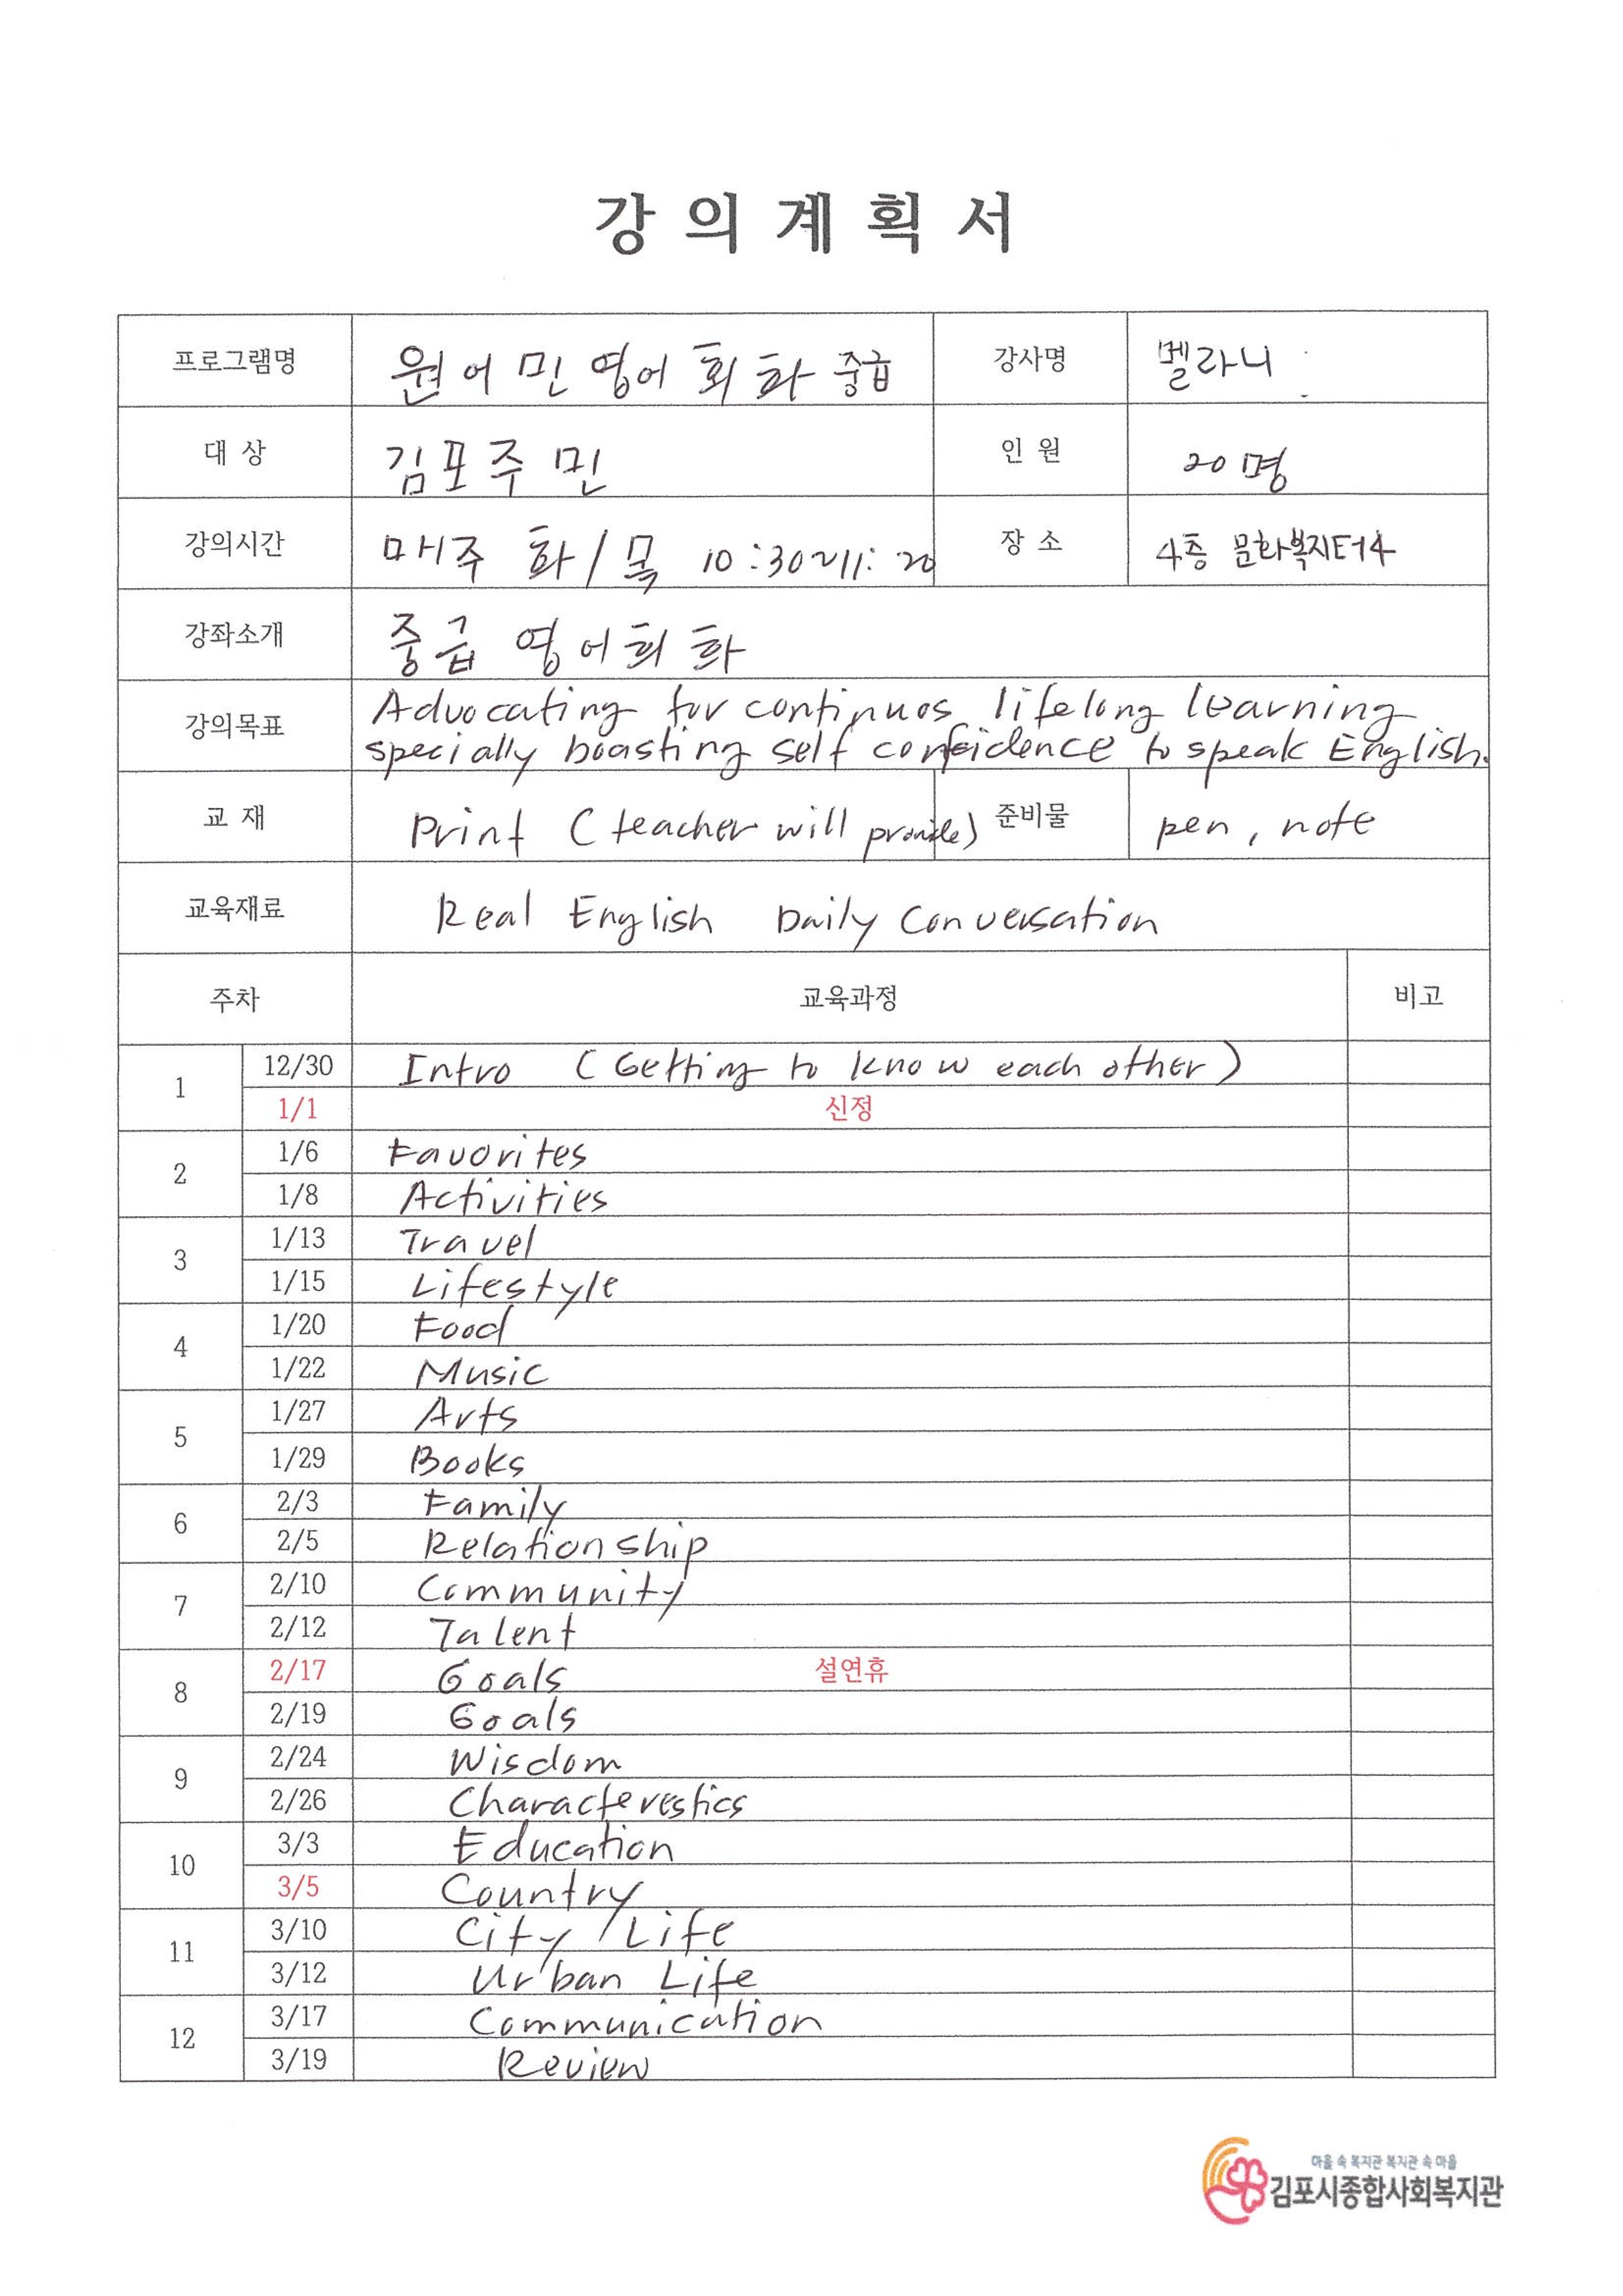 강 의 계 획 서
프로그램명 원어민영어회화 중급 강사명 멜라니
대 상 김포주민 인 원 20명
강의시간 매주 화/목 10:30~11:20 장 소 4층 문화복지터4
강좌소개 중급 영어회화
강의목표 Advocating for continuos lifelong learning
specially boasting self confeidence to speak English.
교 재 Print (teacher will provide) 준비물 pen, note
교육재료 Real English Daily Conversation
주차 교육과정 비고
1 12/30 Intro (Getting to know each other)
1/1 신정
2 1/6 Favorites
1/8 Activities
3 1/13 Travel
1/15 Lifestyle
4 1/20 Food
1/22 Music
5 1/27 Arts
1/29 Books
6 2/3 Family
2/5 Relationship
7 2/10 Community
2/12 Talent
8 2/17 Goals 설연휴
2/19 Goals
9 2/24 Wisdom
2/26 Characterestics
10 3/3 Education
3/5 Country
11 3/10 City Life
3/12 Urban Life
12 3/17 Communication
3/19 Review
마을 속 복지관 복지관 속 마을
김포시종합사회복지관